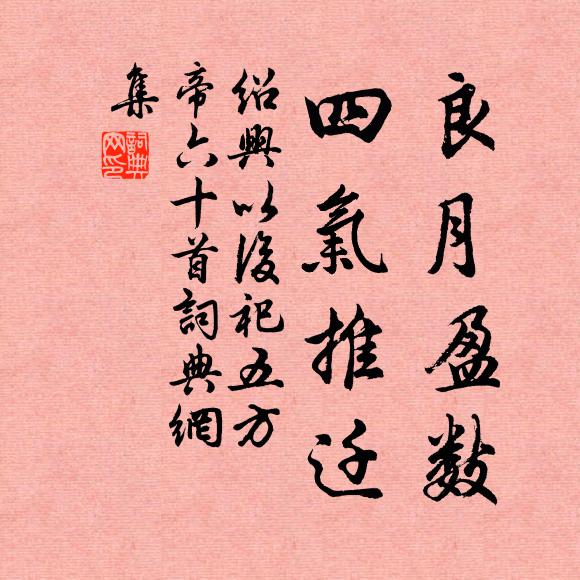 良月盈数
四氣推迁
紹興以後祀五方
帝六十首詞典網
集
詞典
网印